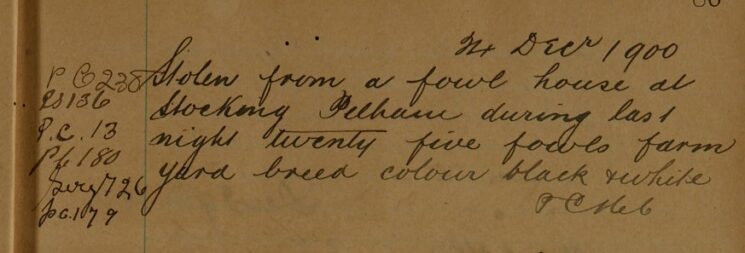 24 Decr 1900
P C 238 Stolen from a fowl house at
PS 136 Stocking Pelham during last
P.C. 13 night twenty five fowls farm
Pc 180 yard breed colour black & white
Sergt 26
pc. 179